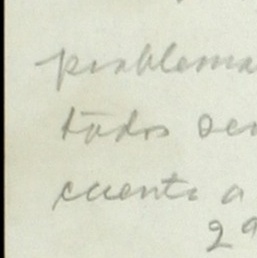 problema
todos
cuenta a
2ª